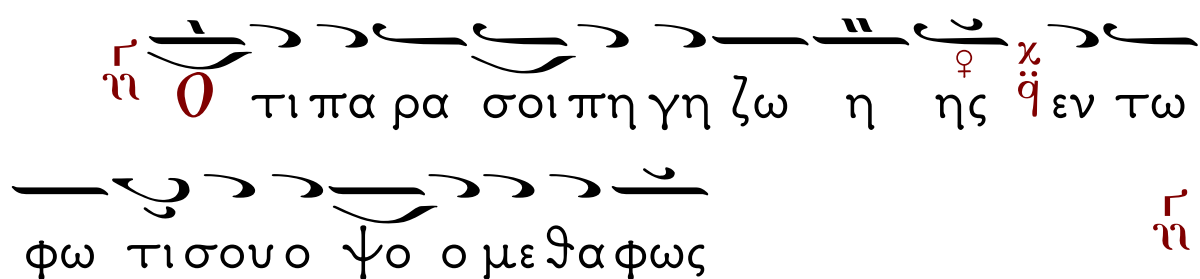 Ο τι πα ρα σοι πη γη ζω η ης εν τω
φω τι σου ο ψο ο με θα φως